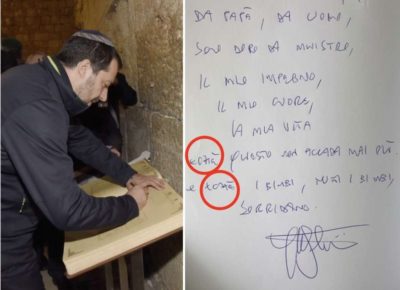 DA PAPÀ, DA UOMO,
SOLO DOPO DA MINISTRO,
IL MIO IMPEGNO,
IL MIO CUORE,
LA MIA VITA
xchè QUESTO NON ACCADA MAI PIÙ.
e xchè I BIMBI, TUTTI I BIMBI,
SORRIDANO.